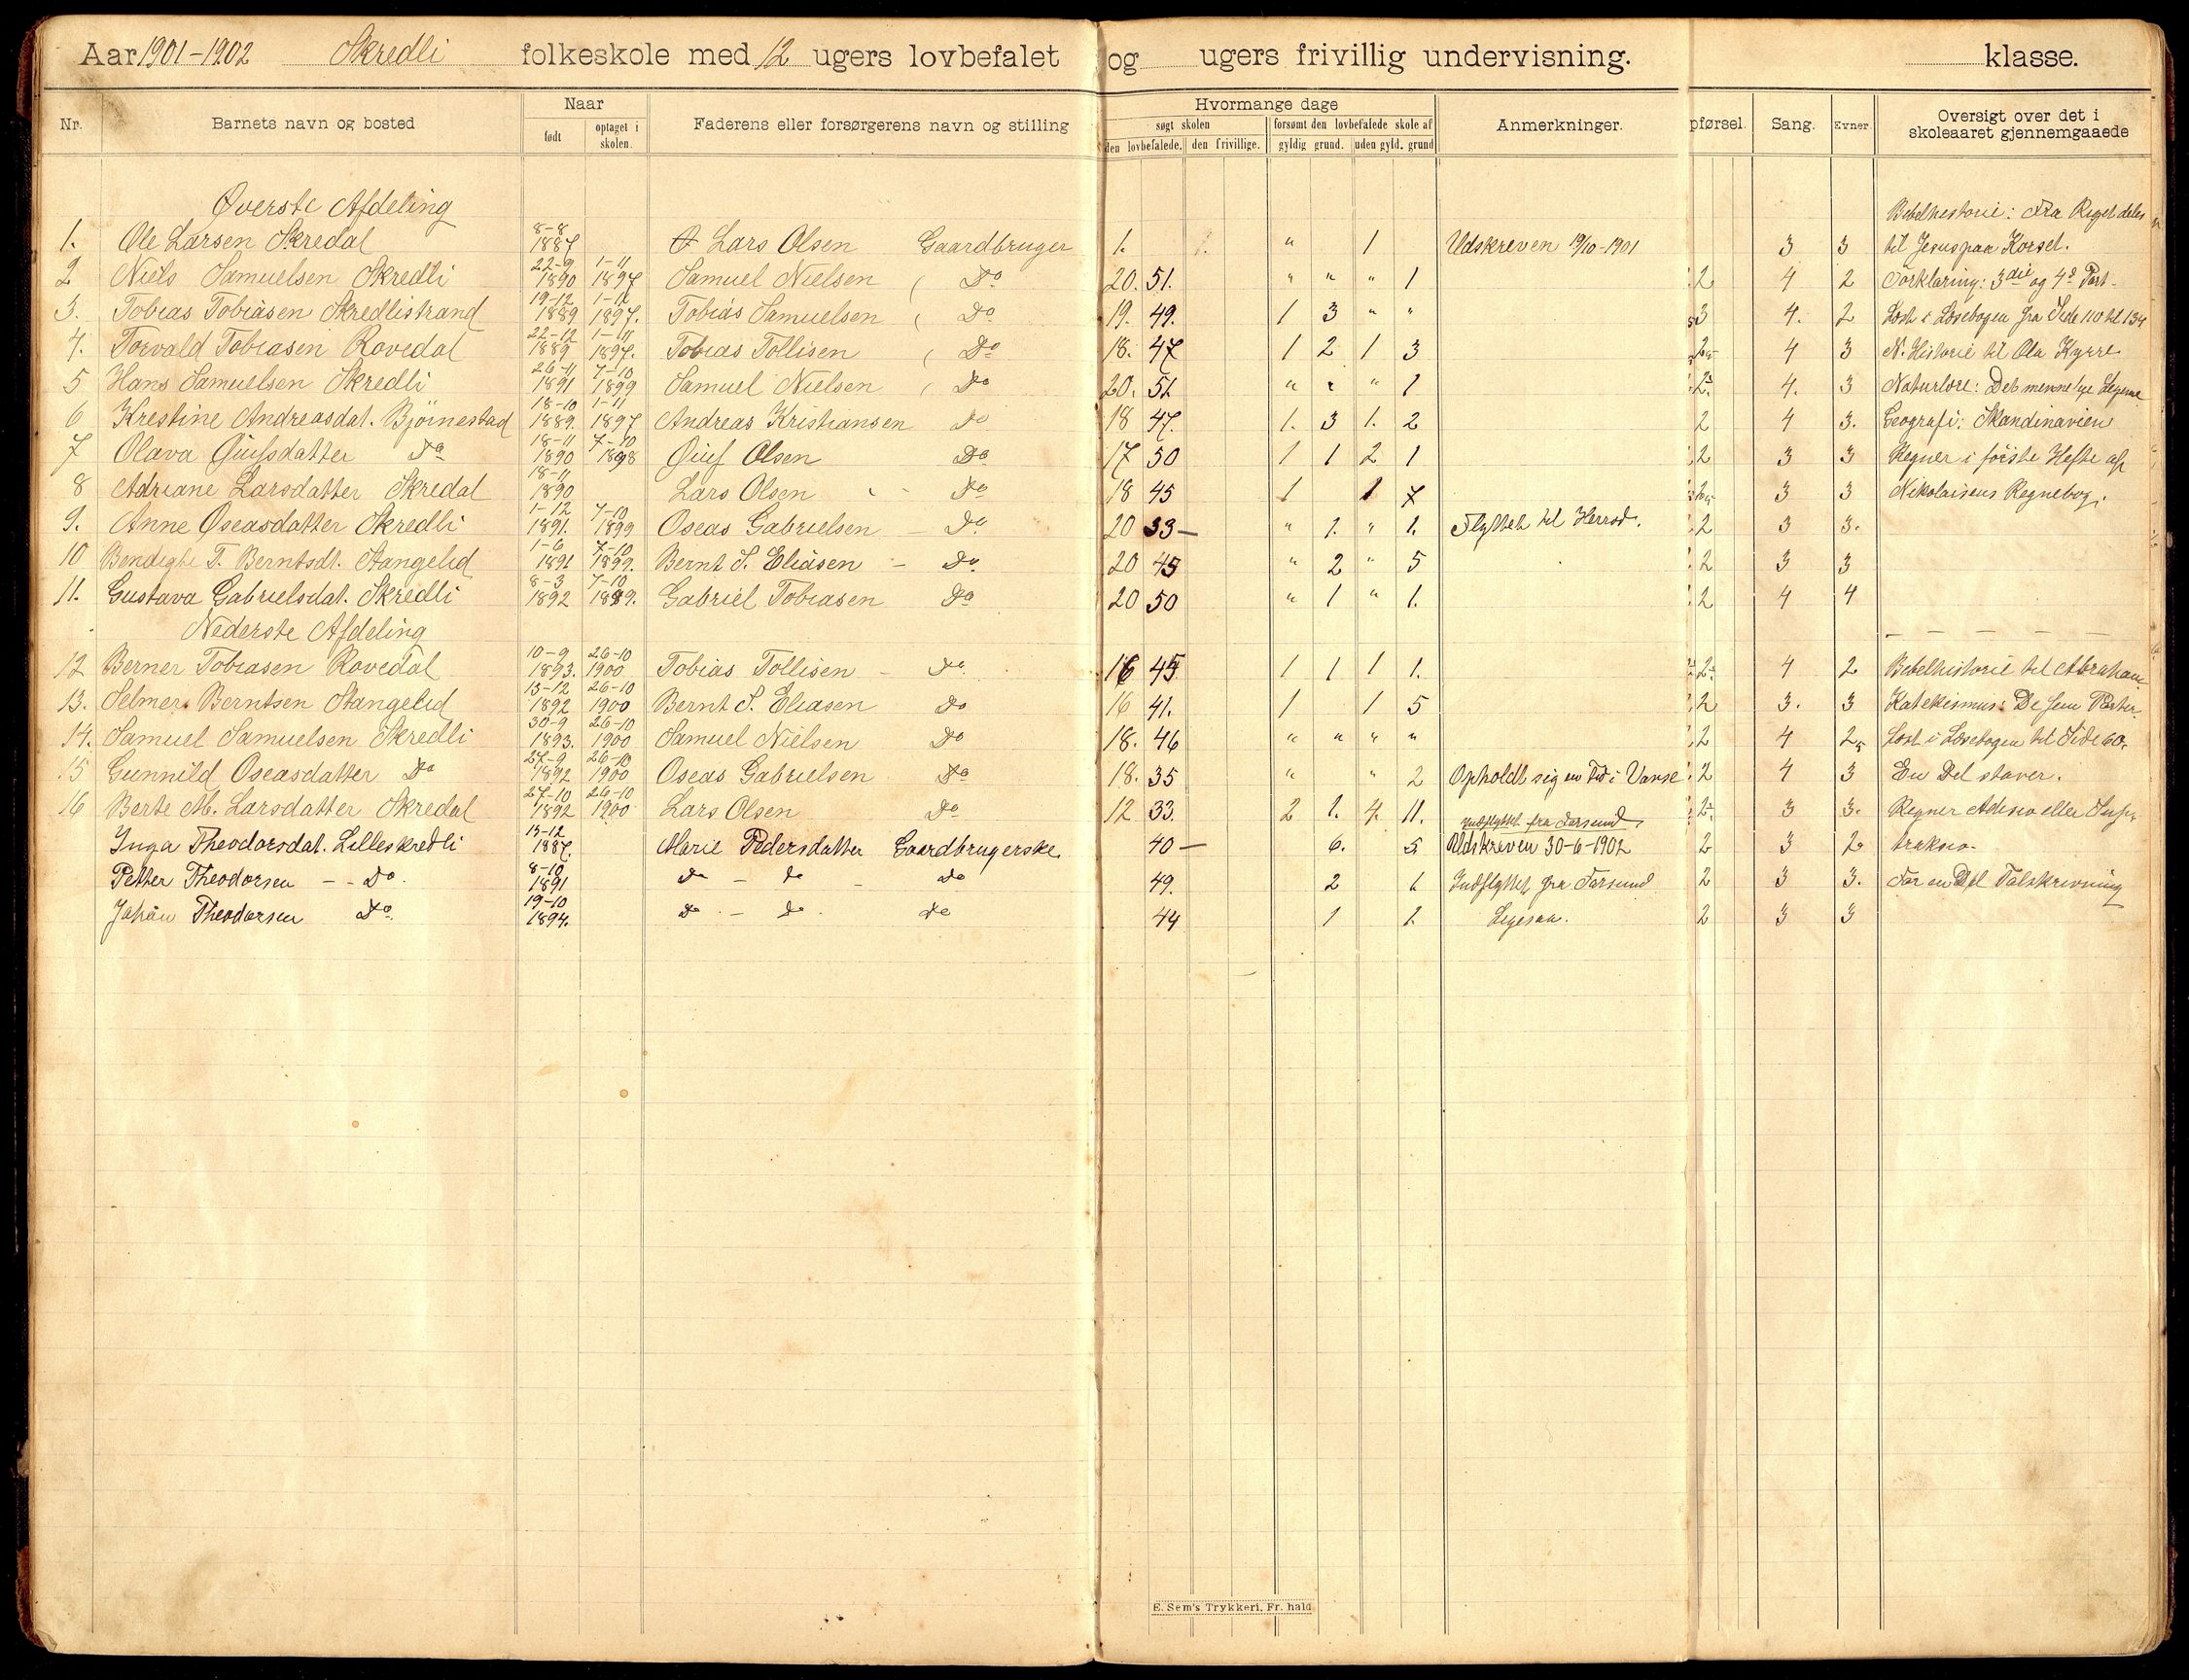 Aar 1901-1902 Skredli folkeskole med 12 ugers lovbefalet og ugers frivillig undervisning. klasse.
Nr. Barnets navn og bosted Naar født optaget i skolen. Faderens eller forsørgerens navn og stilling Hvormange dage søgt skolen den lovbefalede. den frivillige. forsømt den lovbefalede skole af gyldig grund. uden gyld. grund Anmerkninger. pførsel. Sang. Evner Oversigt over det i skoleaaret gjennemgaaede
Øverste Afdeling Bibelhistorie: Fra Riget deles
1. Ole Larsen Skredal 8-8 1887 Lars Olsen Gaardbruger 1. 1. " 1 Udskreven 19/10-1901 3 3 til Jesus paa Korset.
2 Niels Samuelsen Skredli 22-9 1890 1-11 1897 Samuel Nielsen Do 20. 51. " " " 1 2 4 2 Forklaring: 3die og 4de Part.
3. Tobias Tobiasen Skredlistrand 19-12 1889 1-11 1897. Tobias Samuelsen Do 19. 49. 1 3 " " 3 4. 2 Læst i Læsebogen fra Side 110 til 134
4. Torvald Tobiasen Rovedal 22-12 1889 1-11 1897. Tobias Tollisen Do 18. 47 1 2 1 3 2 4 3 N. Historie til Ola Kyrre
5 Hans Samuelsen Skredli 26-11 1891 7-10 1899 Samuel Nielsen Do 20. 51 " " " 1 2. 4. 3 Naturlære: Det mennelige Legeme
6 Krestine Andreasdat. Bjørnestad 18-10 1889. 1-11 1897 Andreas Kristiansen Do 18 47. 1. 3 1. 2 2 4 3. Geografi: Skandinavien
7 Olava Øiufsdatter Do 18-11 1890 7-10 1898 Øiuf Olsen Do 17 50 1 1 2 1 2 3 3 Regner i første Hefte af
8 Adriane Larsdatter Skredal 18-11 1890 Lars Olsen Do 18 45 1 1 7 2 3 3 Nikolaisens Regnebog.
9. Anne Oseasdatter Skredli 1-12 1891. 7-10 1899 Oseas Gabrielsen Do 20 33 " 1. " 1. Flyttet til Herred. 2 3 3.
10 Bendigte T. Berntsdt. Stangelid 1-6 1891 7-10 1899. Bernt S. Eliasen Do 20 45 " 2 " 5 2 3 3
11. Gustava Gabrielsdat. Skredli 8-3 1892 7-10 1899. Gabriel Tobiasen Do 20 50 " 1 " 1. 2 4 4
Nederste Afdeling
12 Berner Tobiasen Rovedal 10-9 1893. 26-10 1900 Tobias Tollisen Do 16 45 1 1 1 1. 2 4 2 Bibelhistorie til Abraham
13. Selmer Berntsen Stangelid 13-12 1892 26-10 1900 Bernt S. Eliasen Do 16 41. 1 1 5 2 3. 3 Katekismus: De fem Parter.
14. Samuel Samuelsen Skredli 30-9 1893. 26-10 1900 Samuel Nielsen Do 18. 46 " " " " 2 4 2 Læst i Læsebogen til Side 60.
15 Gunnild Oseasdatter Do 27-9 1892 26-10 1900 Oseas Gabrielsen Do 18. 35 " " 2 Opholdt sig en Tid i Vanse 2 4 3 En Del staver.
16 Berte M. Larsdatter Skredal 27-10 1892 26-10 1900 Lars Olsen Do 12 33. 2 1. 4. 11. 2 3 3. Regner Adisio eller Sup
Inga Theodorsdat. Lilleskredli 13-12 1887. Marie Pedersdatter Gaardbrugerske. 40 6. 5 Indflyttet fra Farsund Udskreven 30-6-1902 2 3 2 traksio.
Petter Theodorsen Do. 8-10 1891 Do Do Do 49. 2 1 Indflyttet fra Farsund 2 3 3. For en Del Talskrivning
Johan Theodorsen Do 19-10 1894. Do Do Do 44 1 1 Ligesaa. 2 3 3
E. Sem's Trykkeri, Fr. hald